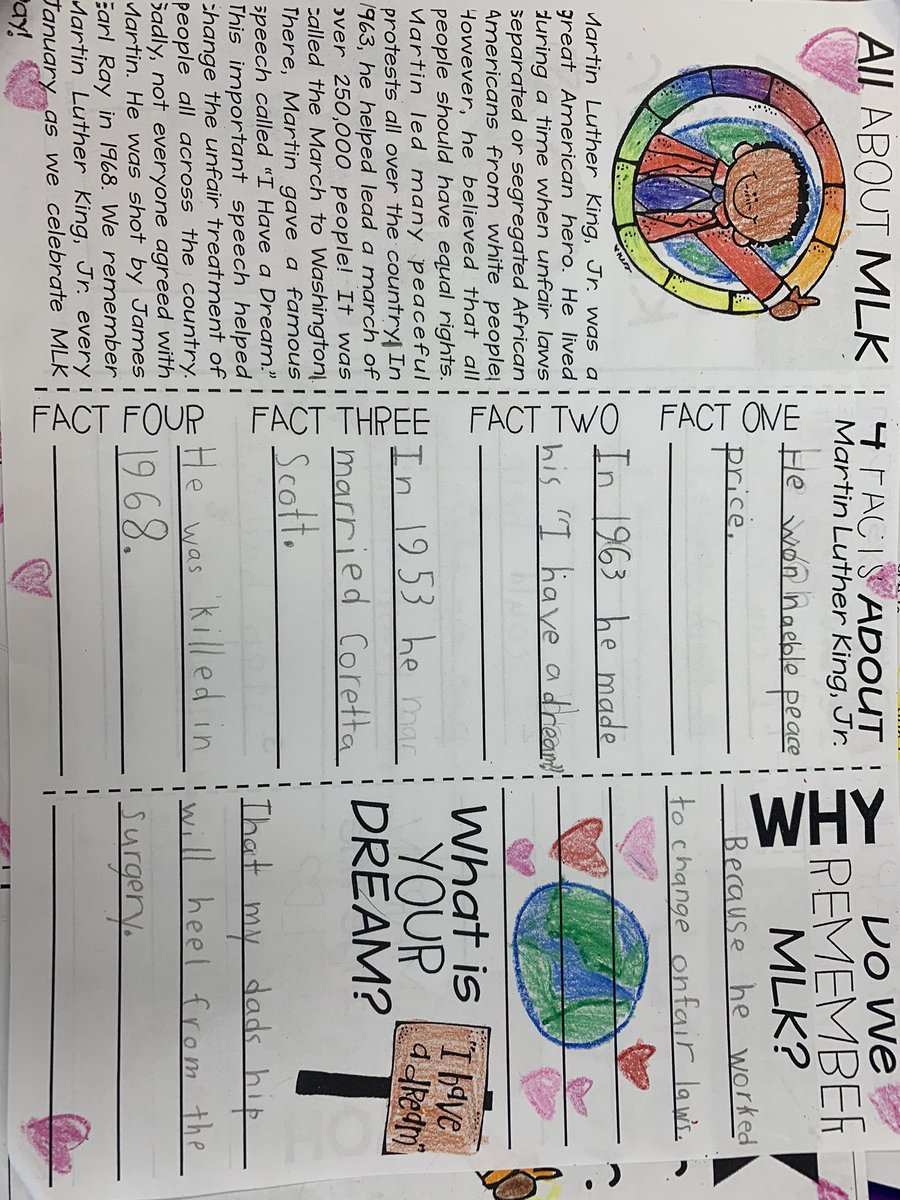 All ABOUT MLK
Martin Luther King, Jr. was a
great American hero. He lived
during a time when unfair laws
separated or segregated African
Americans from white people.
However, he believed that all
people should have equal rights.
Martin led many peaceful
protests all over the country. In
1963, he helped lead a march of
over 250,000 people! It was
called the March to Washington.
There, Martin gave a famous
speech called "I Have a Dream."
This important speech helped
change the unfair treatment of
people all across the country.
Sadly, not everyone agreed with
Martin. He was shot by James
Earl Ray in 1968. We remember
Martin Luther King, Jr. every
January as we celebrate MLK
Day!
4 FACTS ABOUT
Martin Luther King, Jr.
FACT ONE
He won naeble peace
price.
FACT TWO
In 1963 he made
his "I have a dream"
FACT THREE
In 1953 he mar
married Coretta
Scott.
FACT FOUR
He was killed in
1968.
WHY DO WE
REMEMBER
MLK?
Because he worked
to change onfair laws.
What is
YOUR
DREAM?
"I have
a dream"
That my dads hip
will heel from the
surgery.